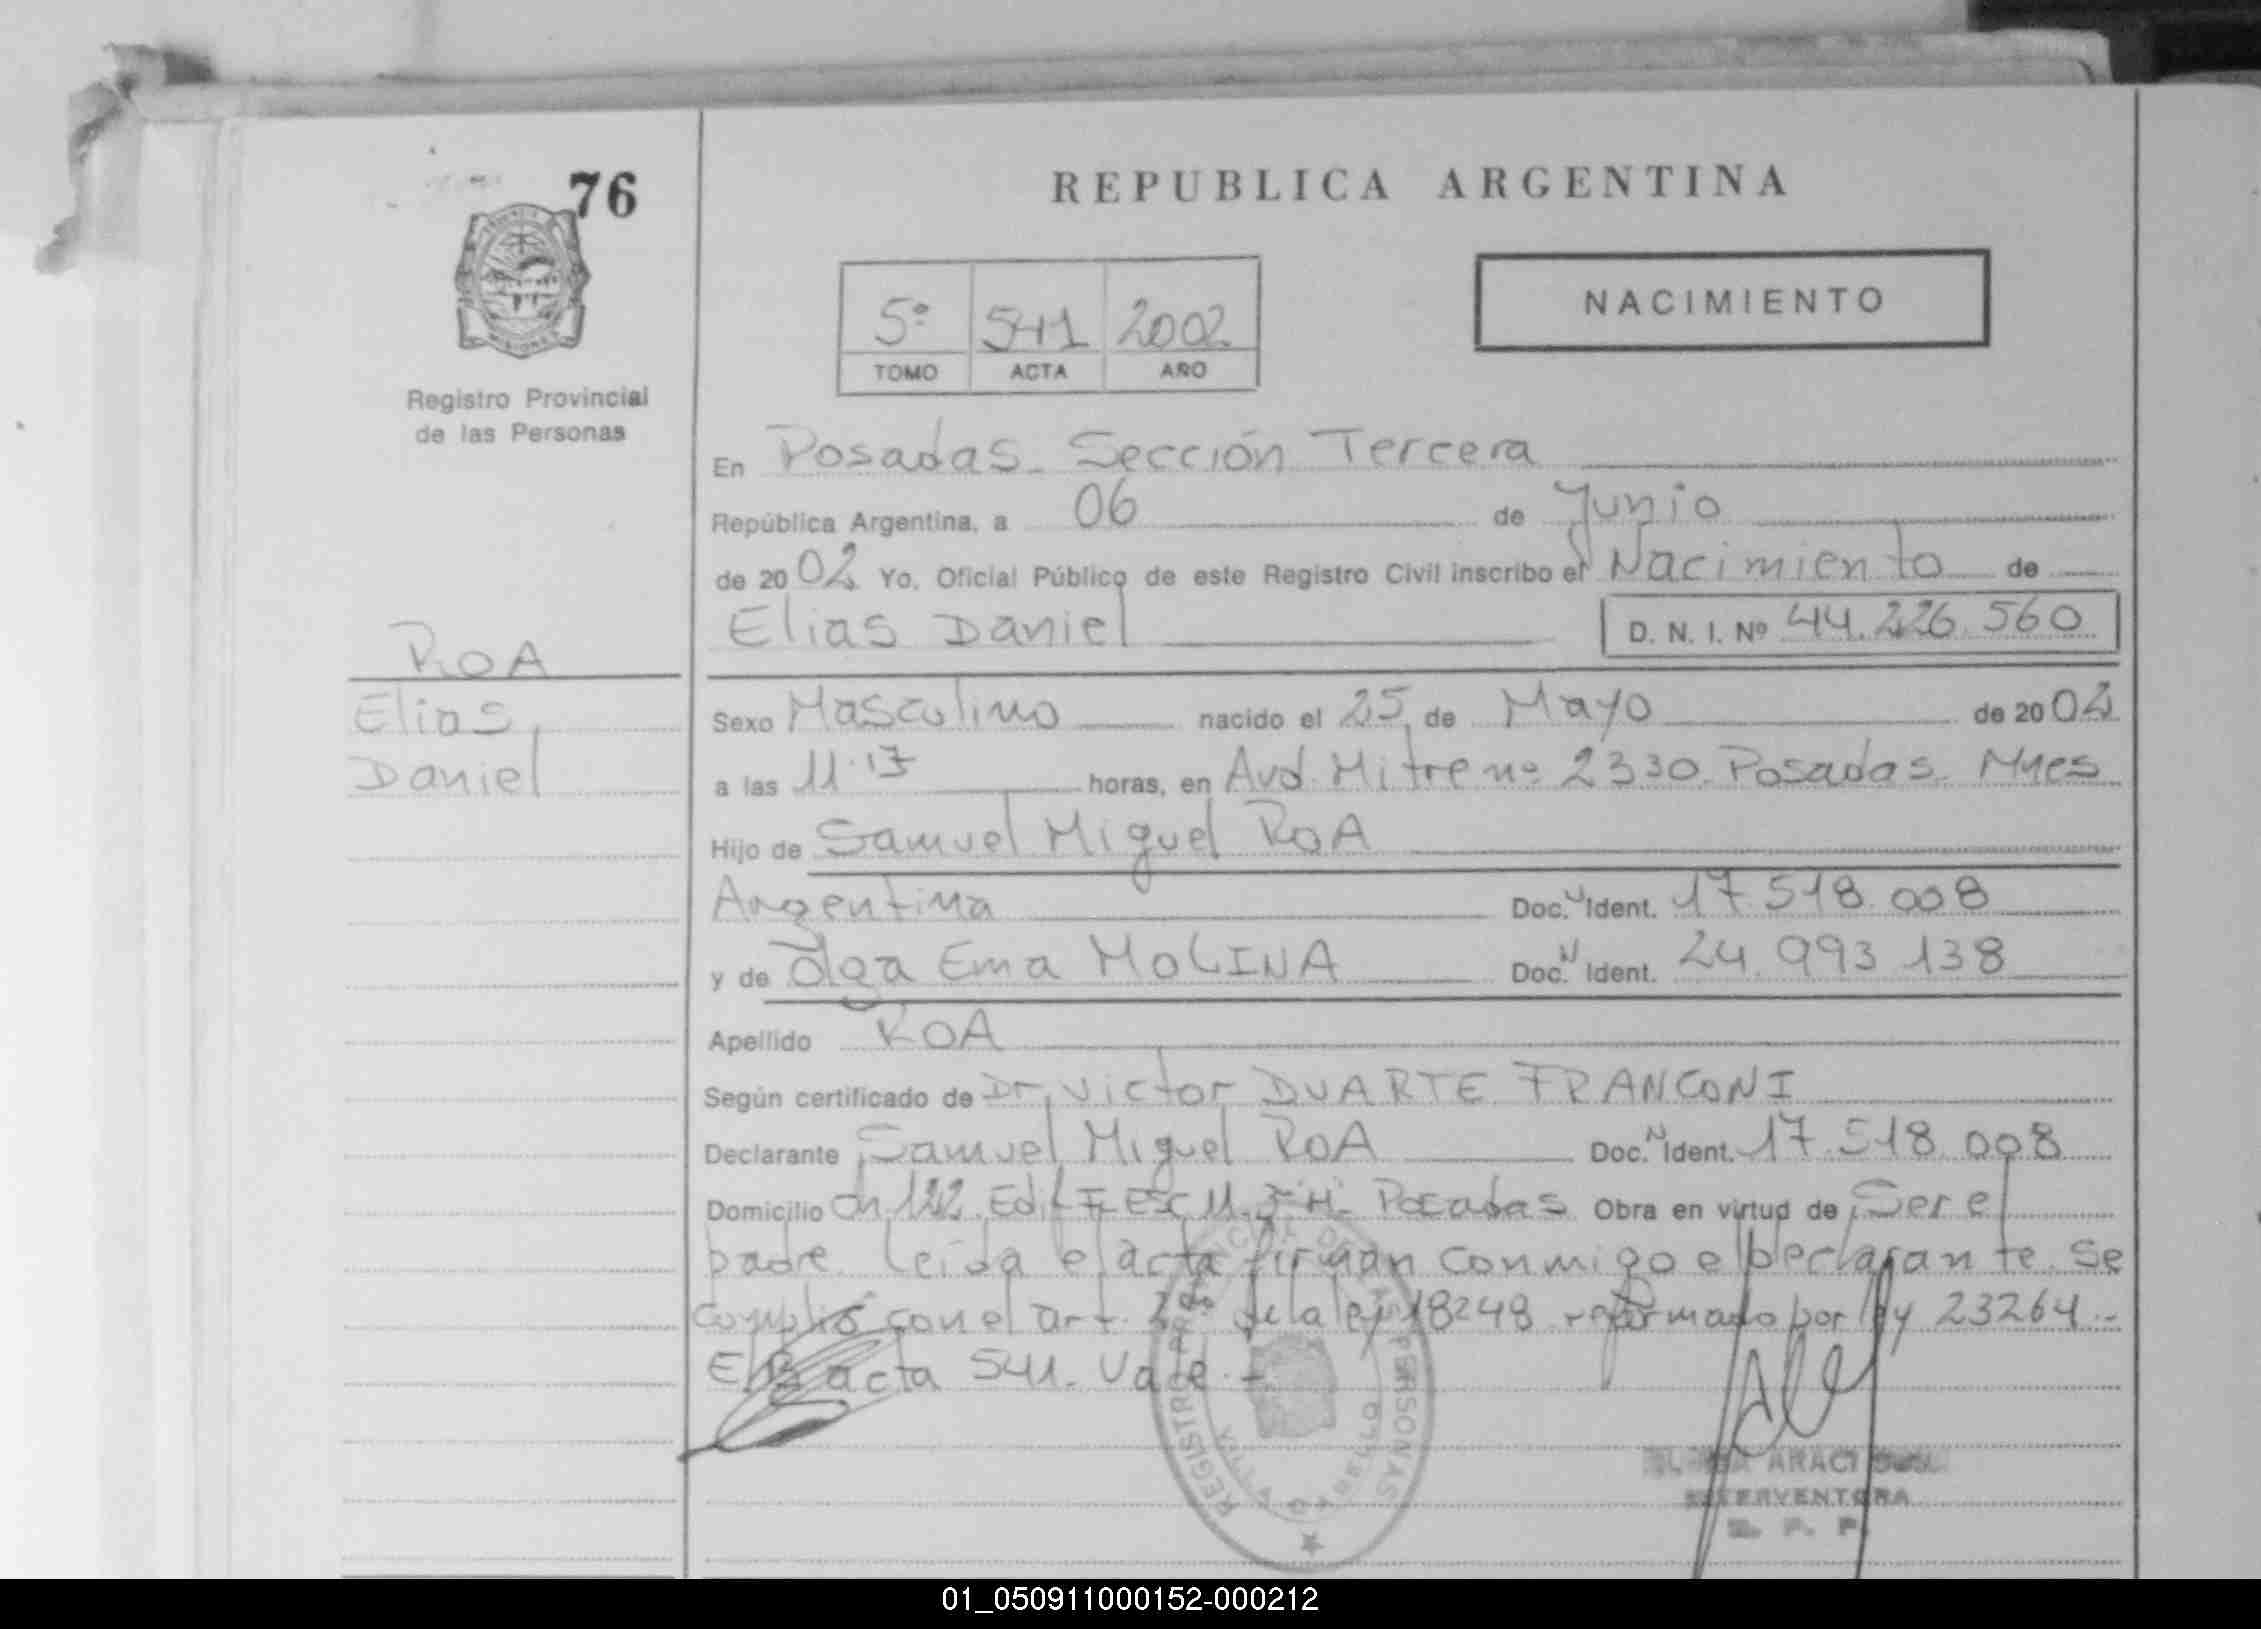 76
REPUBLICA ARGENTINA
NACIMIENTO
5º 541 2002
TOMO ACTA AÑO
Registro Provincial
de las Personas
En Posadas Sección Tercera
República Argentina, a 06 de Junio
de 2002 Yo, Oficial Público de este Registro Civil inscribo el Nacimiento de
Elias Daniel D. N. I. Nº 44.226.560
ROA
Elias
Daniel
Sexo Masculino nacido el 25 de Mayo de 2002
a las 11.17 horas, en Avd. Mitre nº 2330 Posadas Mnes
Hijo de Samuel Miguel ROA
Argentina Doc. N Ident. 17.518.008
y de Olga Ema MOLINA Doc. N Ident. 24.993.138
Apellido ROA
Según certificado de Dr. Victor DUARTE FRANCONI
Declarante Samuel Miguel ROA Doc. N Ident. 17.518.008
Domicilio Ch 122 Edif Esc 11 Posadas Obra en virtud de Ser el
padre. Leída el acta firman conmigo el Declarante. Se
cumplió con el art. 2º de la ley 18248 reformado por ley 23264.-
acta 541. Vale.-
REGISTRO PROVINCIAL DE LAS PERSONAS
VILLA CABELLO
ARACI
INTERVENTORA
R. P. P.
01_050911000152-000212